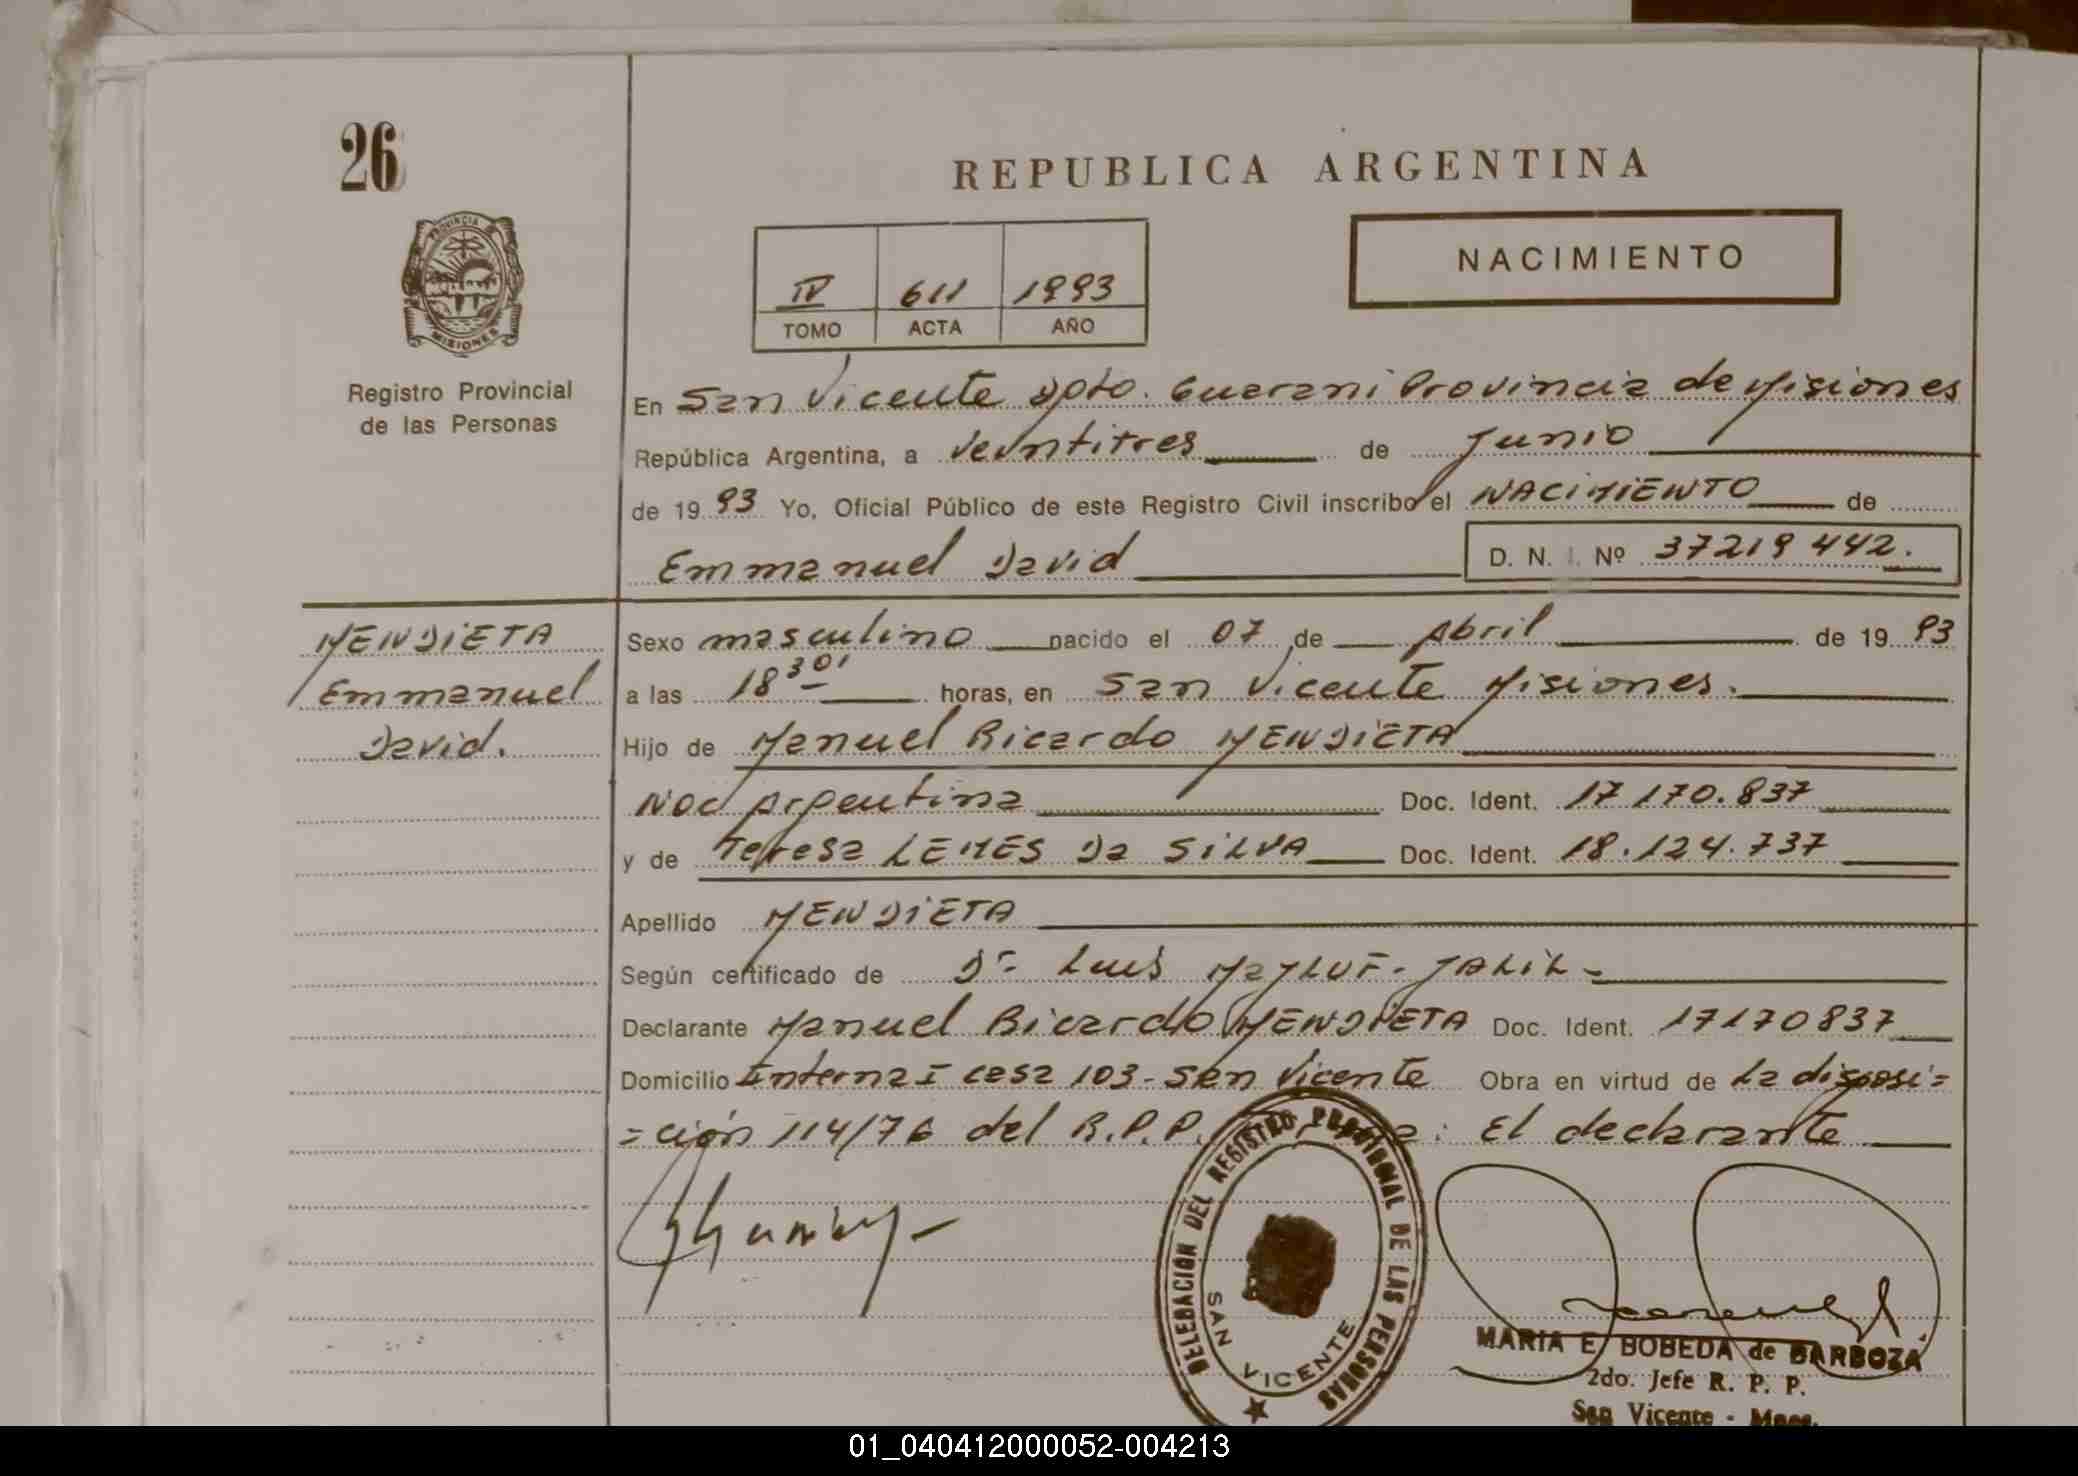 26
REPUBLICA ARGENTINA
PROVINCIA
MISIONES
Registro Provincial
de las Personas
IV 611 1993
TOMO ACTA AÑO
NACIMIENTO
En San Vicente Dpto. Guarani Provincia de Misiones
República Argentina, a veintitres de Junio
de 19 93 Yo, Oficial Público de este Registro Civil inscribo el NACIMIENTO de
Emmanuel David D. N. I. Nº 37219442.
MENDIETA
Emmanuel
David.
Sexo masculino nacido el 07 de Abril de 19 93
a las 18 30' horas, en San Vicente Misiones.
Hijo de Manuel Ricardo MENDIETA
Nac Argentina Doc. Ident. 17 170.837
y de Teresa LEMES Da SILVA Doc. Ident. 18.124.737
Apellido MENDIETA
Según certificado de Dr- Luis MAYLUF-JALIL-
Declarante Manuel Ricardo MENDIETA Doc. Ident. 17170837
Domicilio Interna I casa 103-San Vicente Obra en virtud de La disposi=
=ción 114/76 del R.P.P. El declarante
DELEGACIÓN DEL REGISTRO PROVINCIAL DE LAS PERSONAS
SAN VICENTE
MARIA E BOBEDA de BARBOZA
2do. Jefe R. P. P.
San Vicente - Mnes.
01_040412000052-004213